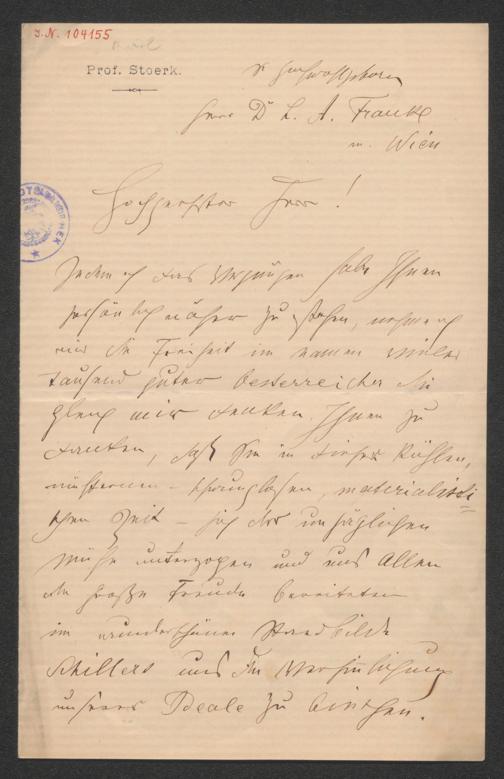 J.N. 104155
Prof. Stoerk.
Sr Hochwohlgeboren
Herr Dr L. A. Frankl
in Wien
Hochgeehrter Herr!
Indem ich das Vergnügen habe Ihnen
persönlich näher zu stehen, nehme ich
mir die Freiheit im namen vieler
tausend guter Oesterreicher die
gleich mir denken, Ihnen zu
danken, daß Sie in dieser kühlen,
nüchternen – schwunglosen, materialisti
schen Zeit – sich der unsäglichen
Mühe unterzogen und uns Allen
die große Freude bereiteten
im wunderschönen Standbilde
Schillers uns die Versinnlichung
unseres Ideale zu